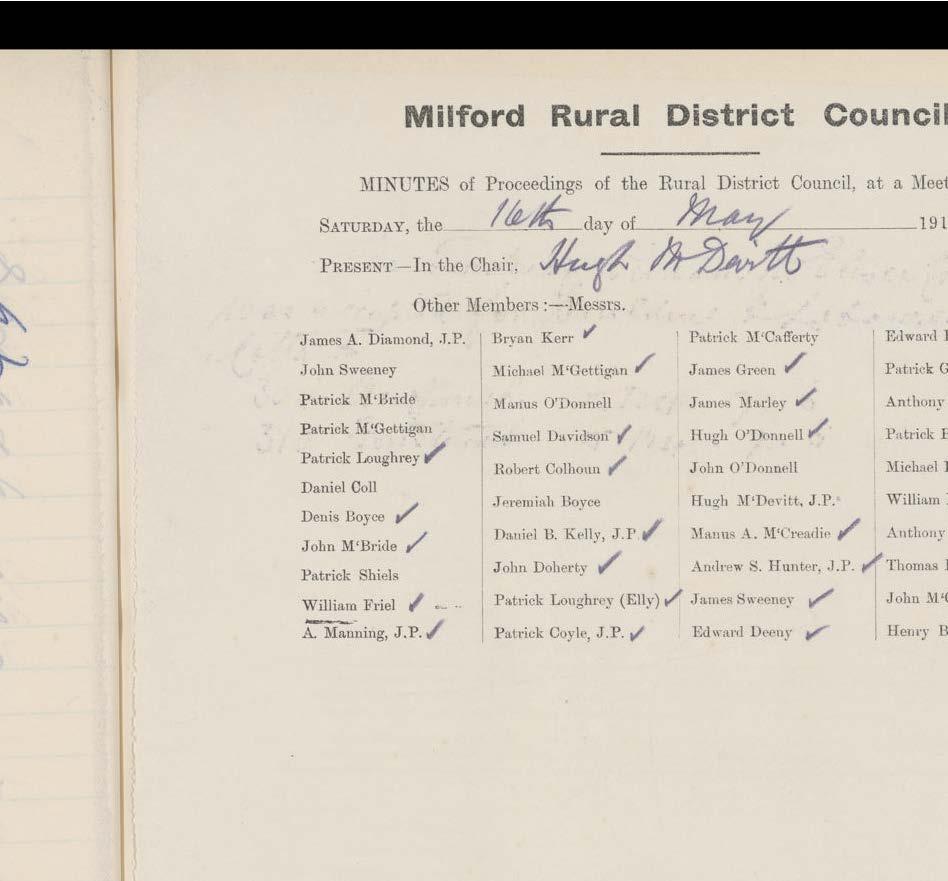 Milford Rural District Council
MINUTES of Proceedings of the Rural District Council, at a Meet
SATURDAY, the 16th day of May 191
PRESENT—In the Chair, Hugh McDevitt
Other Members:—Messrs.
James A. Diamond, J.P.
John Sweeney
Patrick M‘Bride
Patrick M‘Gettigan
Patrick Loughrey ✓
Daniel Coll
Denis Boyce ✓
John M‘Bride ✓
Patrick Shiels
William Friel ✓
A. Manning, J.P. ✓
Bryan Kerr ✓
Michael M‘Gettigan ✓
Manus O’Donnell
Samuel Davidson ✓
Robert Colhoun ✓
Jeremiah Boyce
Daniel B. Kelly, J.P. ✓
John Doherty ✓
Patrick Loughrey (Elly) ✓
Patrick Coyle, J.P. ✓
Patrick M‘Cafferty
James Green ✓
James Marley ✓
Hugh O’Donnell ✓
John O’Donnell
Hugh M‘Devitt, J.P.
Manus A. M‘Creadie ✓
Andrew S. Hunter, J.P. ✓
James Sweeney ✓
Edward Deeny ✓
Edward
Patrick G
Anthony
Patrick
Michael
William
Anthony
Thomas
John M‘
Henry B